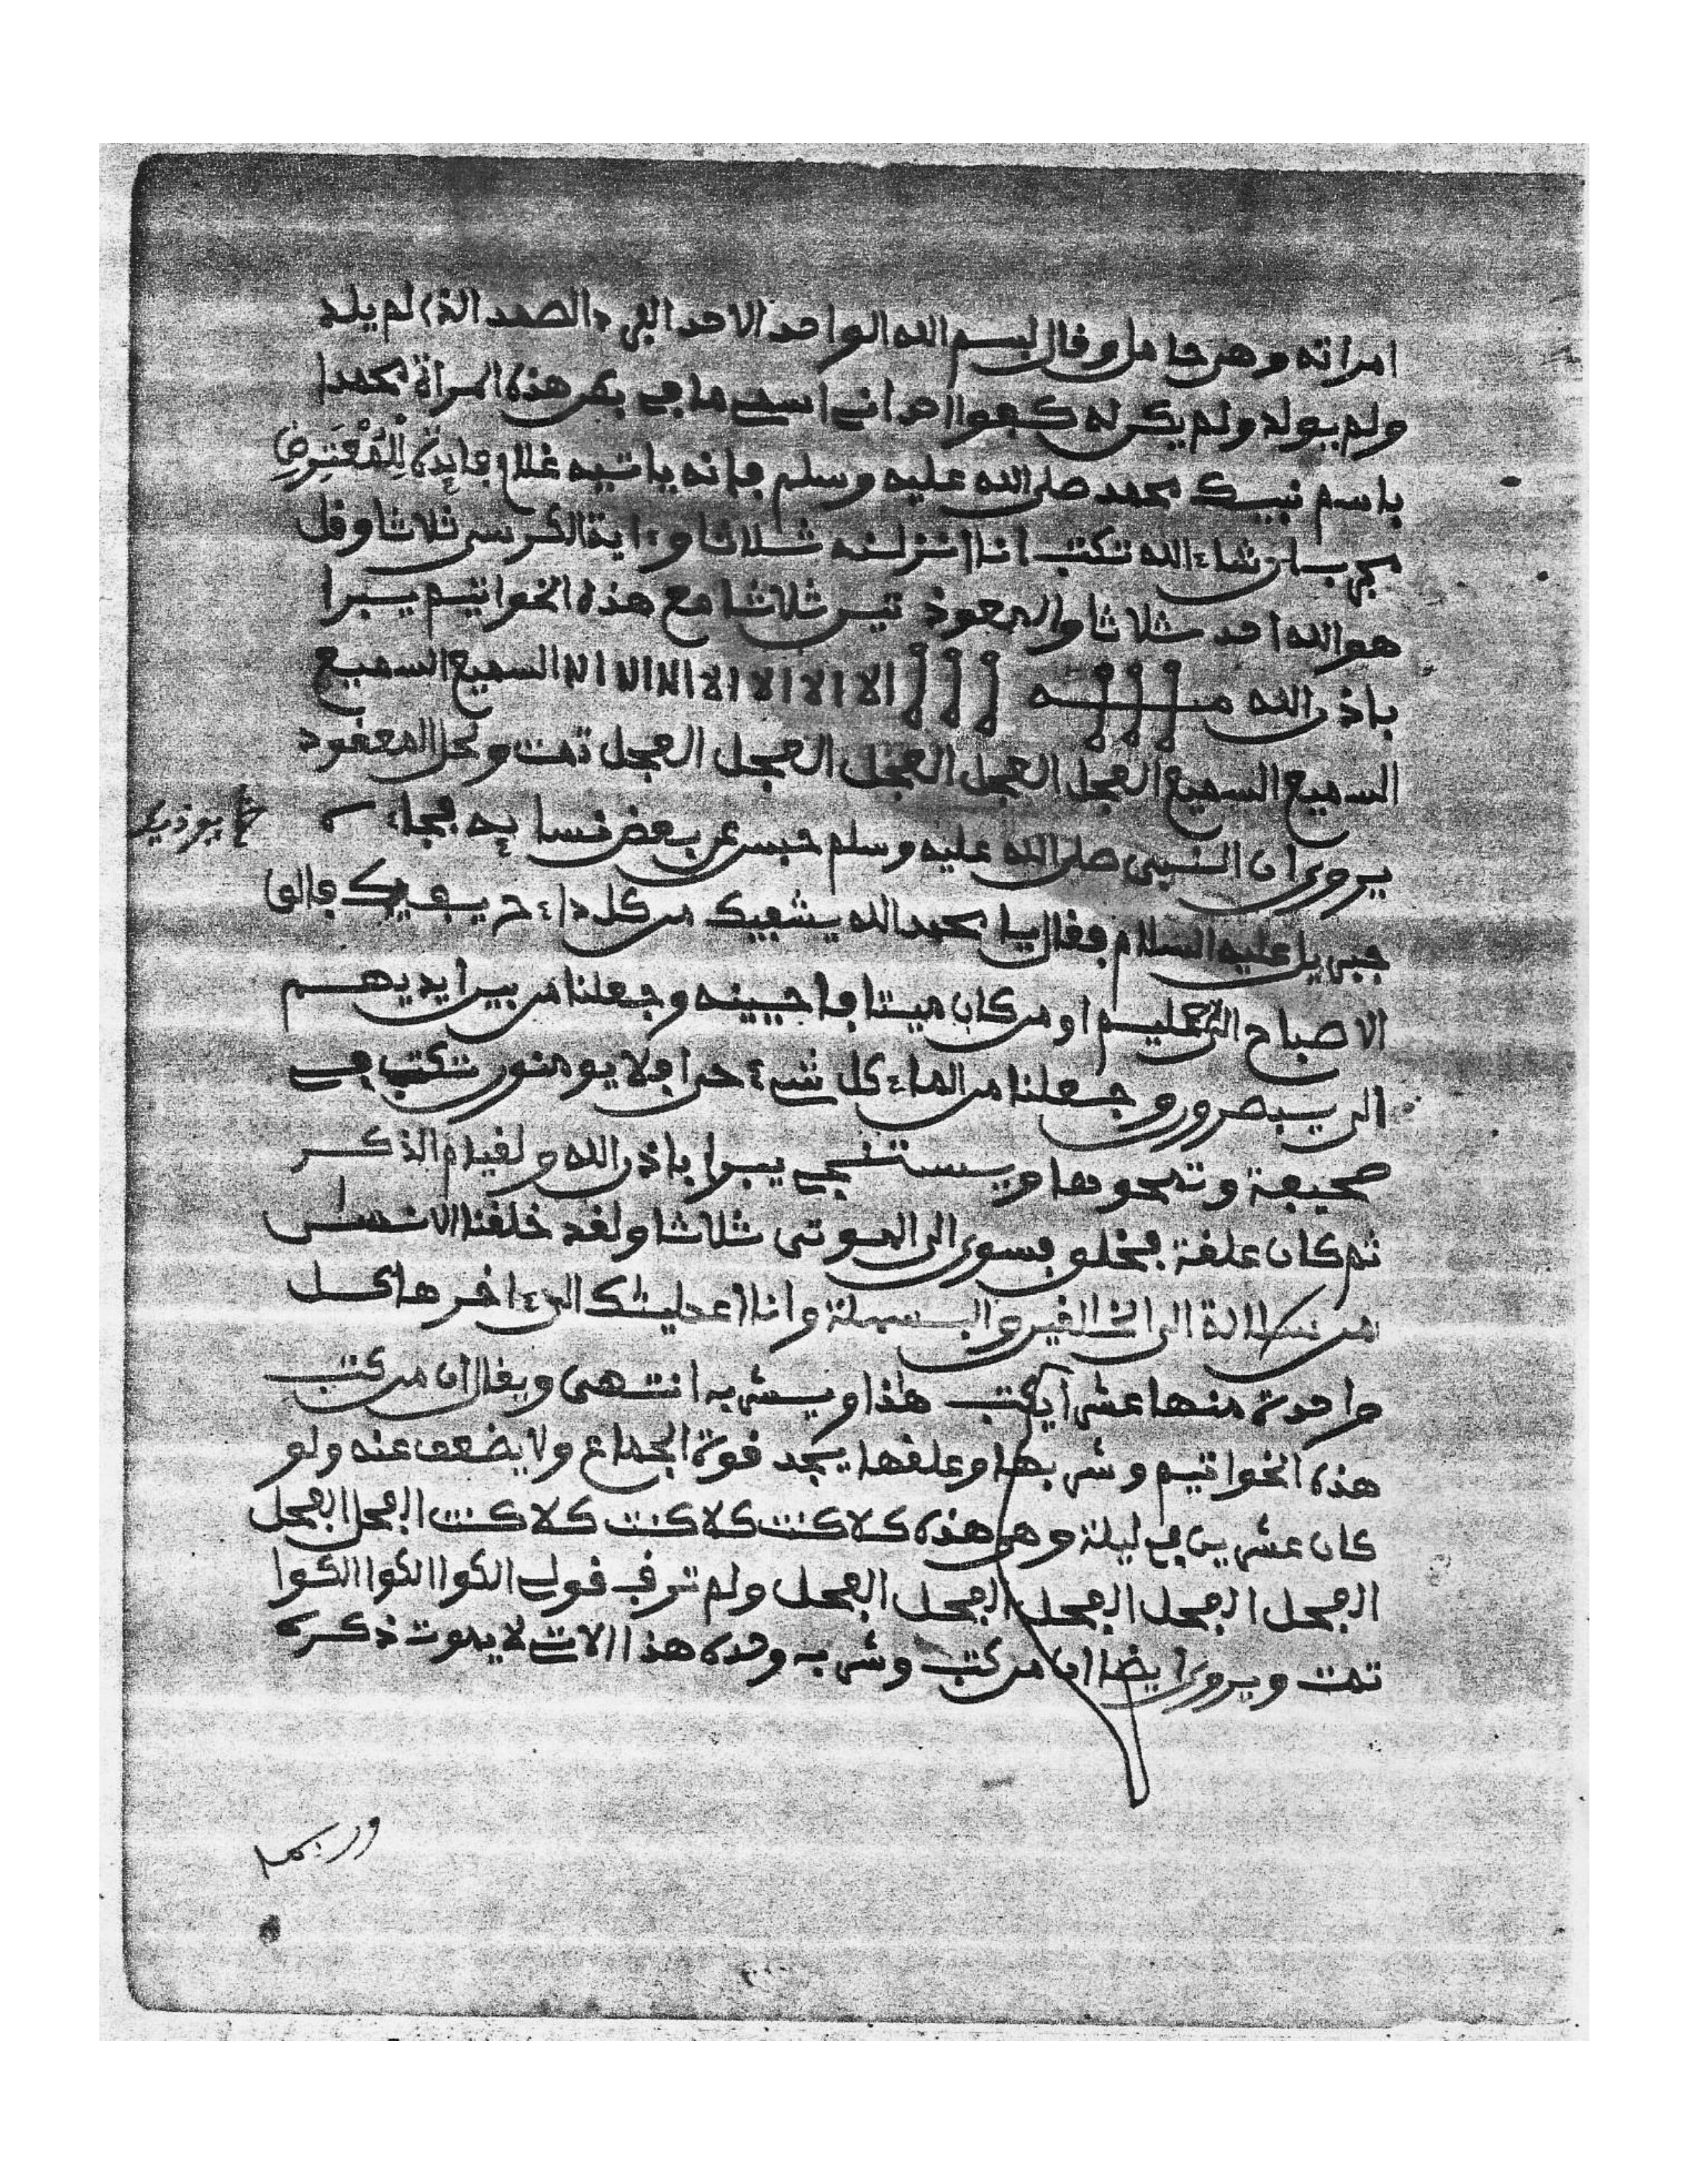 امراته وهى حامل وقال بسم الله الواحد الاحد الفرد الصمد الذى لم يلد
ولم يولد ولم يكن له كفوا احد انى اسمى ما فى بطن هذه المراة محمدا
باسم نبيك محمد صلى الله عليه وسلم فانه ياتيه غلام فايدة للمعترض
مجرب ان شاء الله تكتب انا انزلنه ثلاثا وءاية الكرسى ثلاثا وقل
هو الله احد ثلاثا والمعوذتين ثلاثا مع هذه الخواتيم يبرا
باذن الله الا الا الا الا الا الا الا الا السميع السميع
السميع السميع العجل العجل العجل العجل العجل تمت ولحل المعقود
يروى ان النبيى صلى الله عليه وسلم حبس عن بعض نسايه فجاء
جبريل عليه السلام فقال يا محمد الله يشفيك من كل داء فالق
الاصباح الى عليم او من كان ميتا فاحيينه وجعلنا من بين ايديهم
الى يبصرون وجعلنا من الماء كل شىء حى افلا يومنون تكتب فى
صحيفة وتمحوها ويستنجى يبرا باذن الله ولقيام الذكر
ثم كان علقة فخلق فسوى الى الموتى ثلاثا ولقد خلقنا الانسان
من سلالة الى الخالقين والبسملة وانا اعطيناك الى ءاخرها كل
واحدة منها عشرا يكتب هذا ويشربه انتهى ويقال ان من كتب
هذه الخواتيم وشربها وعلقها يجد قوة الجماع ولا يضعف عنه ولو
كان عشرين فى ليلة وهى هذه كلا كنت كلا كنت كلا كنت العجل العجل
العجل العجل العجل العجل العجل ولم ترقب قولى الكوا الكوا الكوا
تمت ويروى ايضا ان من كتب وشربه وحده هذا الات لا يموت ذكره